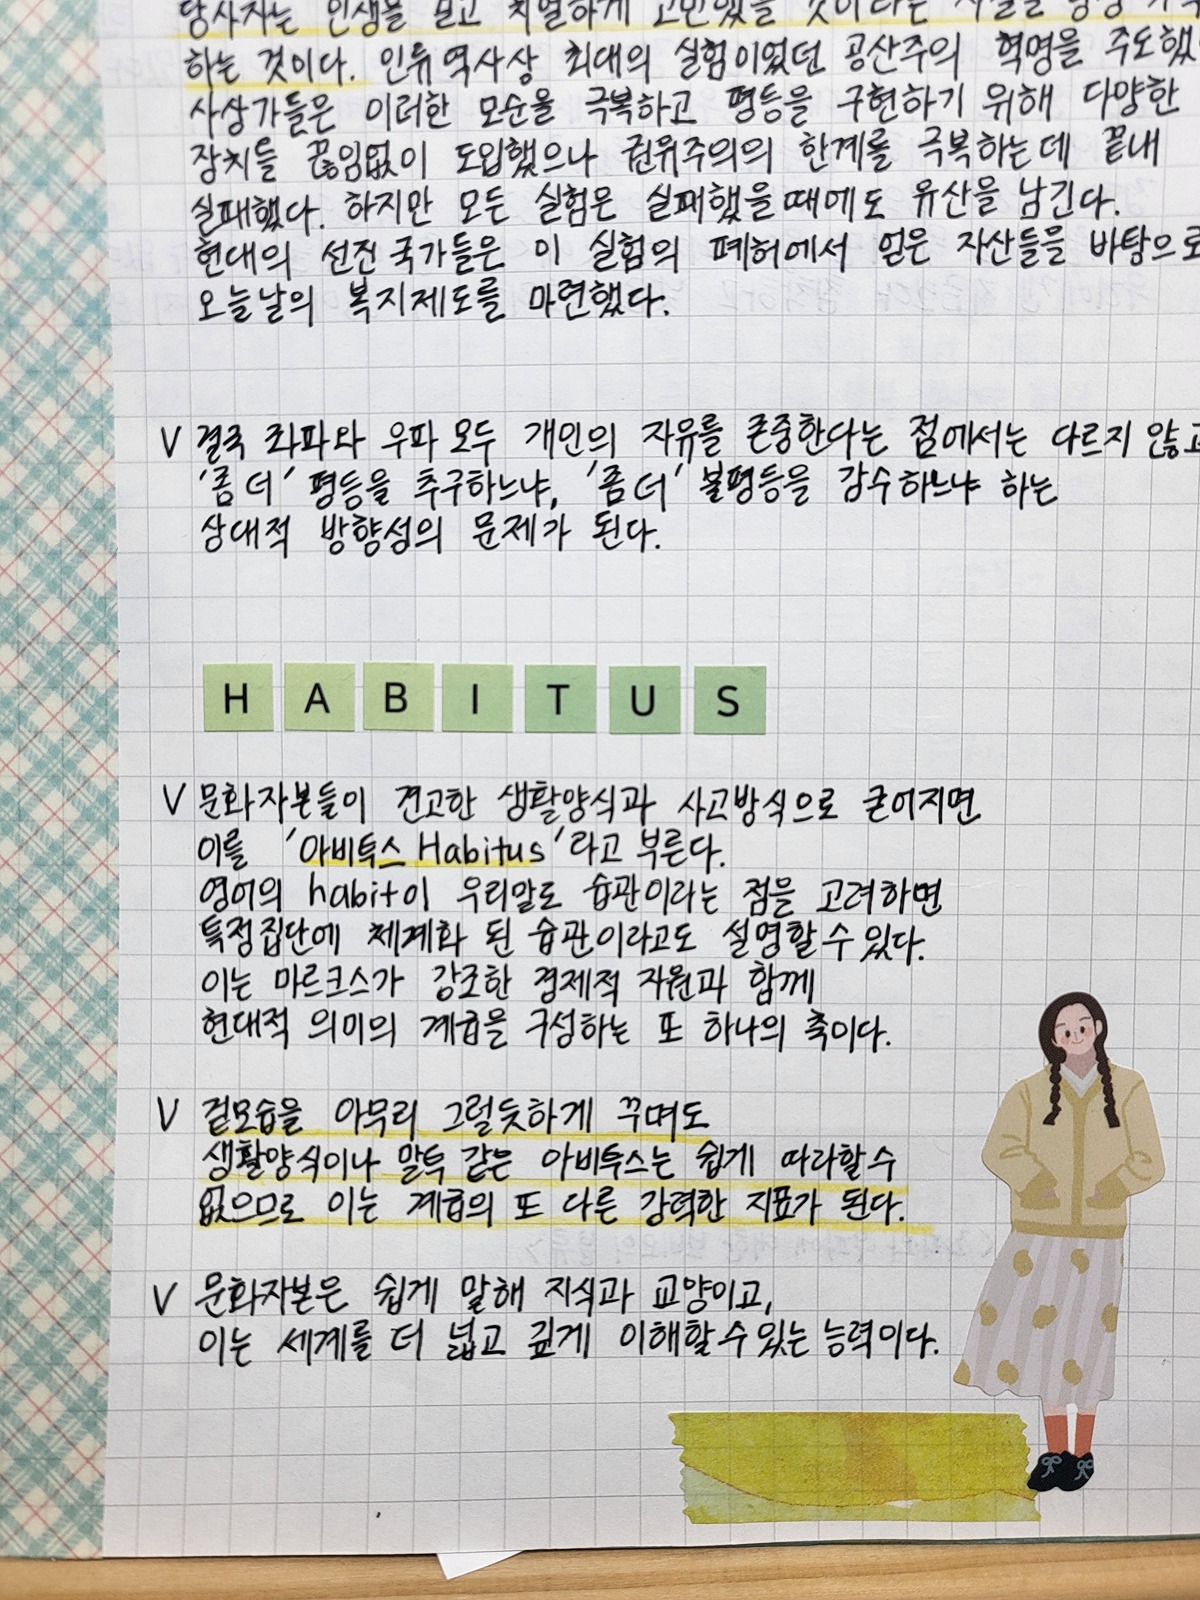 당사자는 인생을 걸고 치열하게 고민했을 것이라는 사실을 항상
하는 것이다. 인류역사상 최대의 실험이었던 공산주의 혁명을 주도했
사상가들은 이러한 모순을 극복하고 평등을 구현하기 위해 다양한
장치를 끊임없이 도입했으나 권위주의의 한계를 극복하는데 끝내
실패했다. 하지만 모든 실험은 실패했을때에도 유산을 남긴다.
현대의 선진국가들은 이 실험의 폐허에서 얻은 자산들을 바탕으로
오늘날의 복지제도를 마련했다.
V 결국 좌파와 우파 모두 개인의 자유를 존중한다는 점에서는 다르지 않고
'좀 더' 평등을 추구하느냐, '좀 더' 불평등을 감수하느냐 하는
상대적 방향성의 문제가 된다.
HABITUS
V 문화자본들이 견고한 생활양식과 사고방식으로 굳어지면
이를 '아비투스 Habitus'라고 부른다.
영어의 habit이 우리말로 습관이라는 점을 고려하면
특정집단에 체계화 된 습관이라고도 설명할수있다.
이는 마르크스가 강조한 경제적 자원과 함께
현대적 의미의 계급을 구성하는 또 하나의 축이다.
V 겉모습을 아무리 그럴듯하게 꾸며도
생활양식이나 말투 같은 아비투스는 쉽게 따라할수
없으므로 이는 계급의 또 다른 강력한 지표가 된다.
V 문화자본은 쉽게 말해 지식과 교양이고,
이는 세계를 더 넓고 깊게 이해할수있는 능력이다.